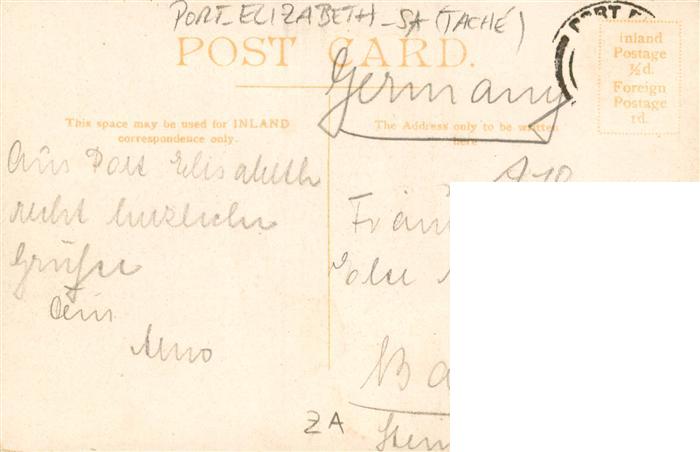 PORT-ELIZABETH-SA (TACHÉ)
POST CARD.
PORT E
Inland
Postage
½d.
Foreign
Postage
1d.
Germany
This space may be used for INLAND
correspondence only.
The Address only to be written
here
Aus Port Elisabeth
recht herzliche
Grüße
Dein
Arno
Fräul
Ba
Stein
ZA